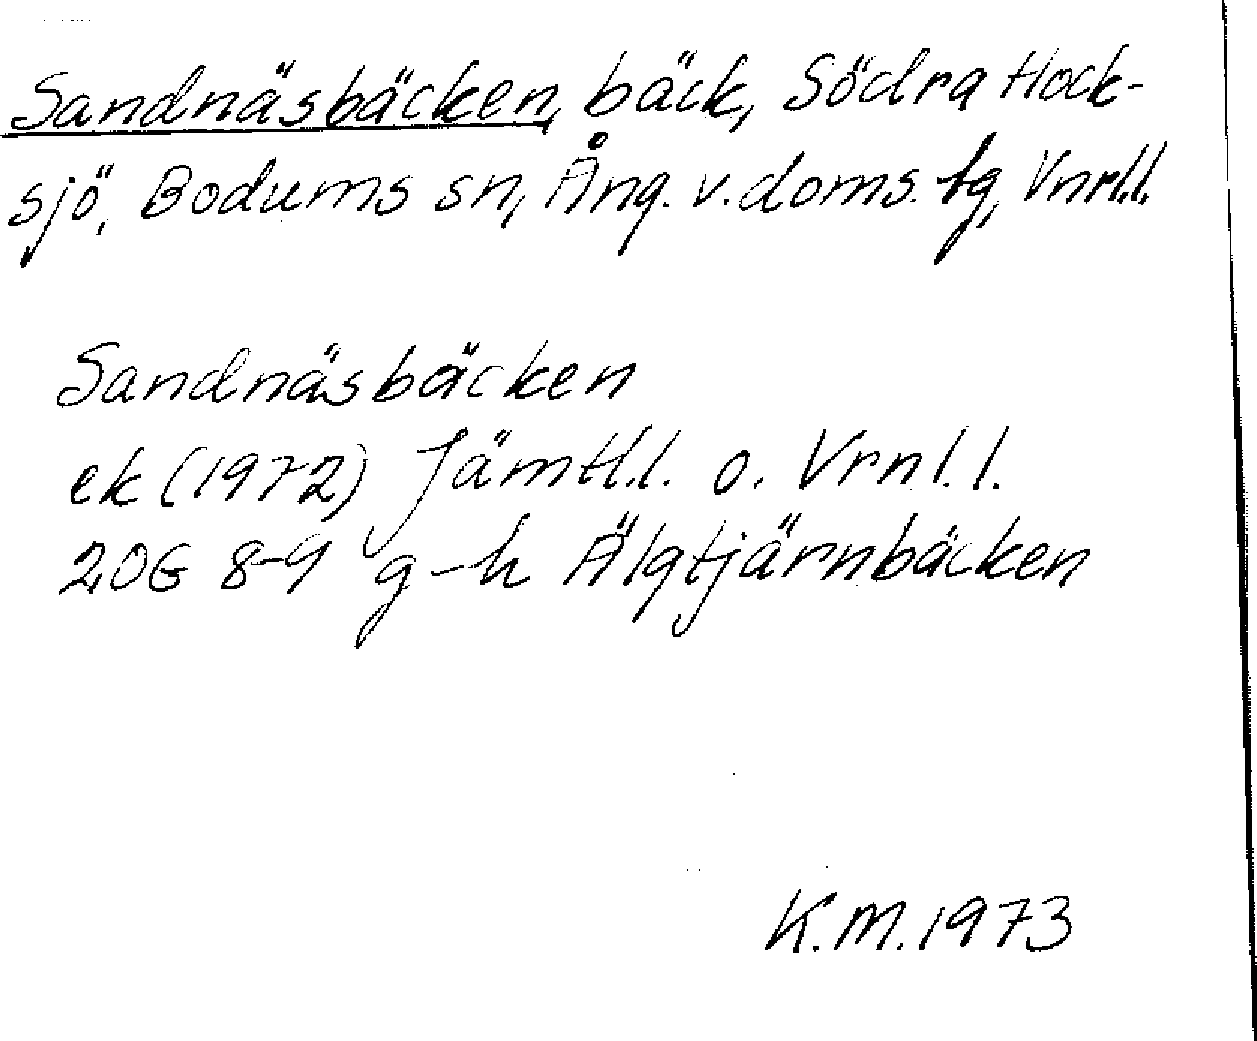 Sandnäsbäcken, bäck, Södra Hock-
sjö, Bodums sn, Ång. v. doms. tg, Vnrl.l.
Sandnäsbäcken
ek (1972) Jämtl.l. o. Vrnl.l.
20G 8-9 g-h Älgtjärnbäcken
K.M. 1973